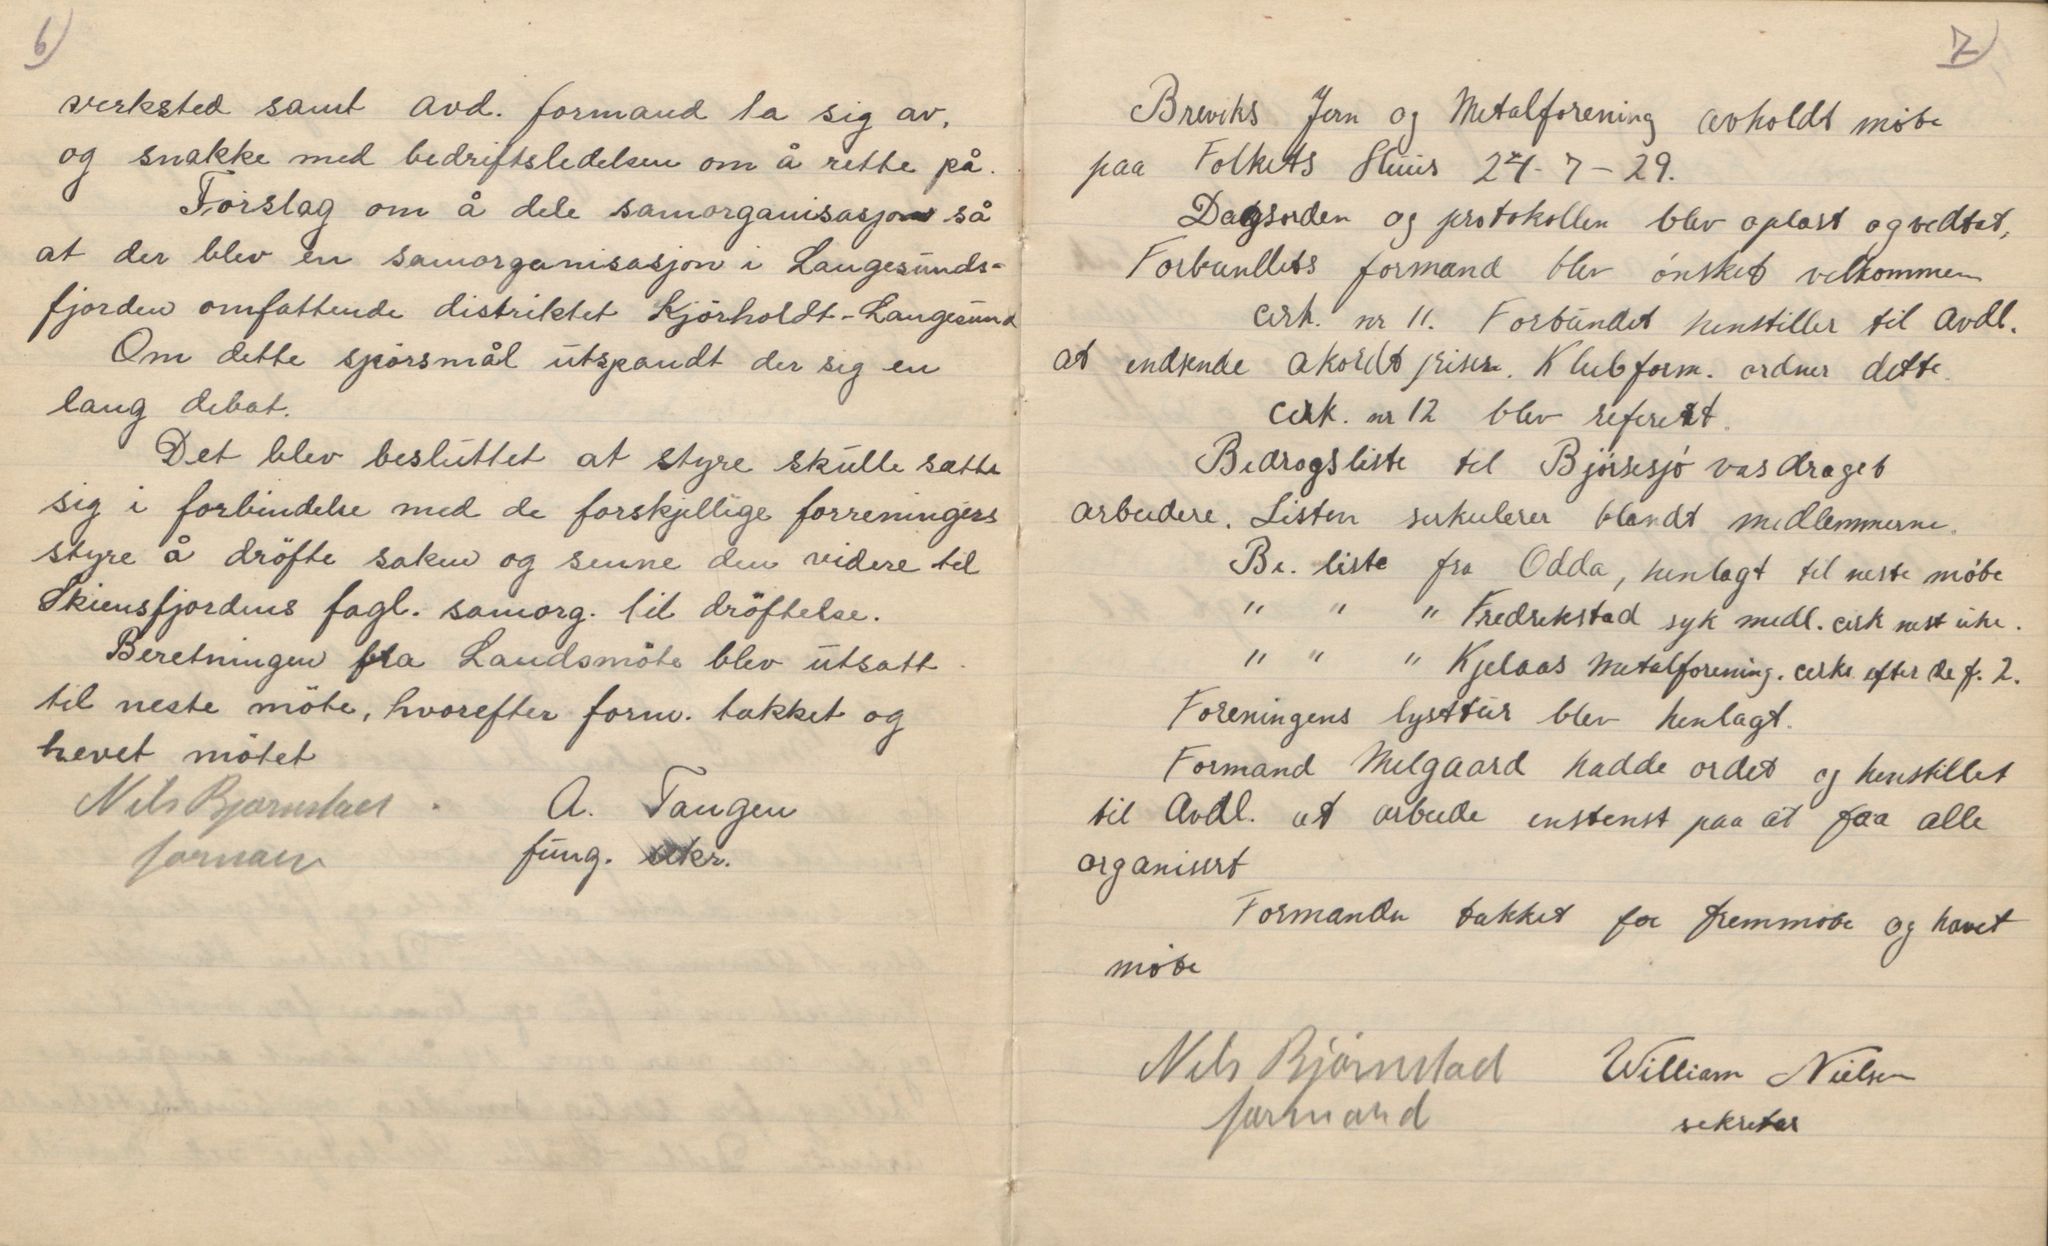 6)
verksted samt avd. formand ta sig av,
og snakke med bedriftsledelsen om å rette på.
Forslag om å dele samorganisasjon så
at der blev en samorganisasjon i Langesunds-
fjorden omfattende distriktet Kjörholdt-Langesund
Om dette spörsmål utspandt der sig en
lang debat.
Det blev besluttet at styre skulle sætte
sig i forbindelse med de forskjellige forreningers
styre å dröfte saken og senne den videre til
Skiensfjordens fagl. samorg. til dröftelse.
Beretningen fra Landsmöte blev utsatt
til neste möte, hvorefter form. takket og
hevet mötet
Nils Bjørnstad . A. Tangen
forman fung. sekr.
7)
Breviks Jern og Metalforening avholdt möte
paa Folkets Huus 24-7-29.
Dagsorden og protokollen blev oplæst og vedtat,
Forbundets formand blev önsket velkommen
cirk. nr 11. Forbundet henstiller til Avdl.
at indsende akordt priser. Klubform. ordner dette.
cirk. nr 12 blev referert.
Bidragsliste til Björsesjö vasdraget
arbeidere. Listen serkulerer blandt medlemmerne.
Bi. liste fra Odda, henlagt til neste möte
" " " Fredrikstad syk medl. cirk nest uke.
" " " Kjelaas Metalforening. cirk. efter de f. 2.
Foreningens lysttur blev henlagt.
Formand Melgaard hadde ordet og henstillet
til Avdl. at arbeide enstenst paa at faa alle
organisert
Formanden takket for fremmöte og hævet
möte
Nils Björnstad William Nielsen
formand sekretær